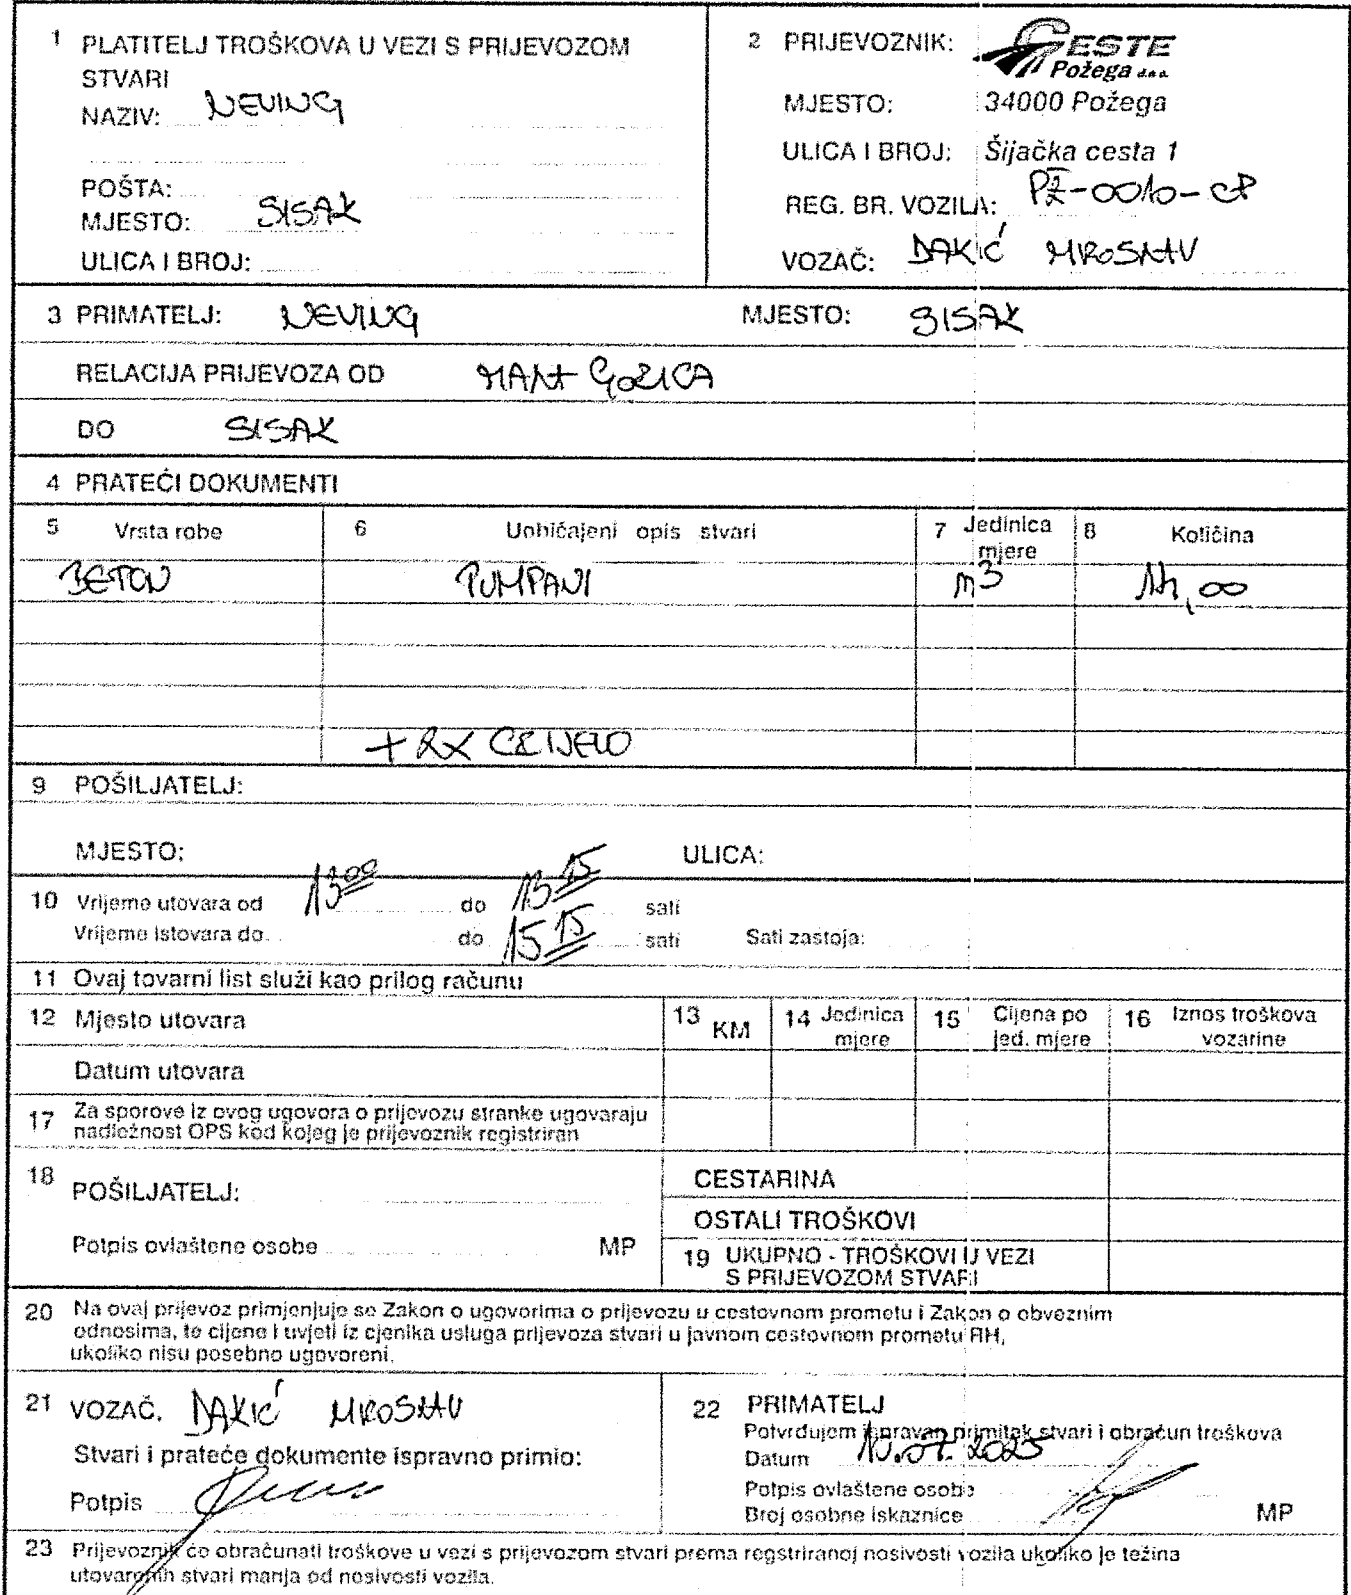 1 PLATITELJ TROŠKOVA U VEZI S PRIJEVOZOM
STVARI
NAZIV: NEVING
POŠTA:
MJESTO: SISAK
ULICA I BROJ:
2 PRIJEVOZNIK: CESTE
Požega d.o.o.
MJESTO: 34000 Požega
ULICA I BROJ: Šijačka cesta 1
REG. BR. VOZILA: PŽ-0010-CP
VOZAČ: DAKIĆ MIROSLAV
3 PRIMATELJ: NEVING MJESTO: SISAK
RELACIJA PRIJEVOZA OD MALA GORICA
DO SISAK
4 PRATEĆI DOKUMENTI
5 Vrsta robe 6 Uobičajeni opis stvari 7 Jedinica mjere 8 Količina
BETON PUMPANI m3 14,00
+ RX CRIJEVO
9 POŠILJATELJ:
MJESTO: ULICA:
10 Vrijeme utovara od 13 00 do 13 15 sati
Vrijeme istovara do do 15 15 sati Sati zastoja:
11 Ovaj tovarni list služi kao prilog računu
12 Mjesto utovara 13 KM 14 Jedinica mjere 15 Cijena po jed. mjere 16 Iznos troškova vozarine
Datum utovara
17 Za sporove iz ovog ugovora o prijevozu stranke ugovaraju
nadležnost OPS kod kojeg je prijevoznik registriran
18 POŠILJATELJ:
Potpis ovlaštene osobe MP
CESTARINA
OSTALI TROŠKOVI
19 UKUPNO - TROŠKOVI U VEZI
S PRIJEVOZOM STVARI
20 Na ovaj prijevoz primjenjuje se Zakon o ugovorima o prijevozu u cestovnom prometu i Zakon o obveznim
odnosima, te cijene i uvjeti iz cjenika usluga prijevoza stvari u javnom cestovnom prometu RH,
ukoliko nisu posebno ugovoreni.
21 VOZAČ. DAKIĆ MIROSLAV
Stvari i prateće dokumente ispravno primio:
Potpis
22 PRIMATELJ
Potvrđujem ispravan primitak stvari i obračun troškova
Datum 10.07.2025
Potpis ovlaštene osobe
Broj osobne iskaznice MP
23 Prijevoznik će obračunati troškove u vezi s prijevozom stvari prema regstriranoj nosivosti vozila ukoliko je težina
utovarenih stvari manja od nosivosti vozila.